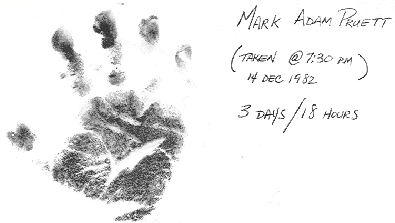 MARK ADAM PRUETT
(TAKEN @ 7:30 PM
14 DEC 1982)
3 DAYS/18 HOURS